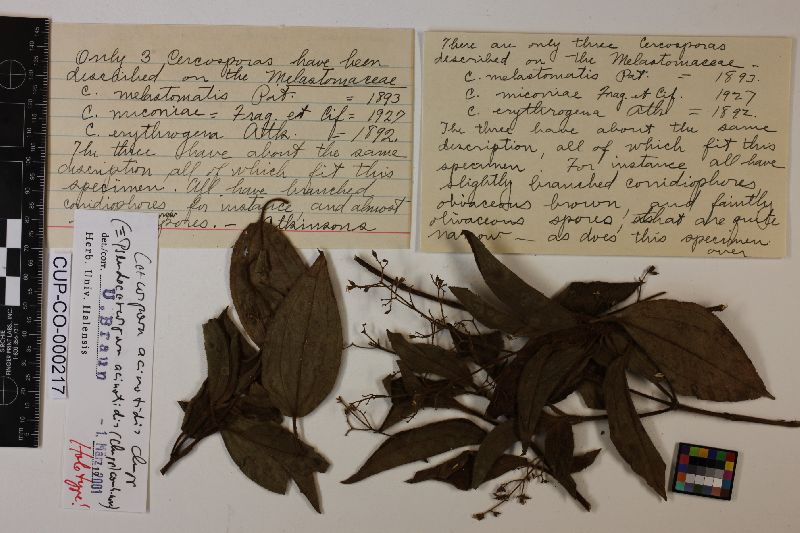 Only 3 Cercosporas have been
described on the Melastomaceae
C. melastomatis Pat. = 1893
C. miconiae = Frag et Cif = 1927
C. erythrogena Atk. = 1892.
The three have about the same
discription all of which fit this
specimen. All have branched
conidiophores for instance, and almost
spores. — Atkinsons
There are only three Cercosporas
described on the Melastomaceae –
C. melastomatis Pat. = 1893.
C. miconiae Frag et Cif. 1927
C. erythrogena Atk = 1892.
The three have about the same
discription, all of which fit this
specimen. For instance all have
slightly branched conidiophores
olivaceous brown, and faintly
olivaceous spores, that are quite
narrow — as does this specimen
over
CUP-CO-000217
Cercospora acinotidis Chupp
(≡ Pseudocercospora acinotidis
det./corr. U. Braun – 1. März 2001
Herb. Univ. Halensis
Holotype!